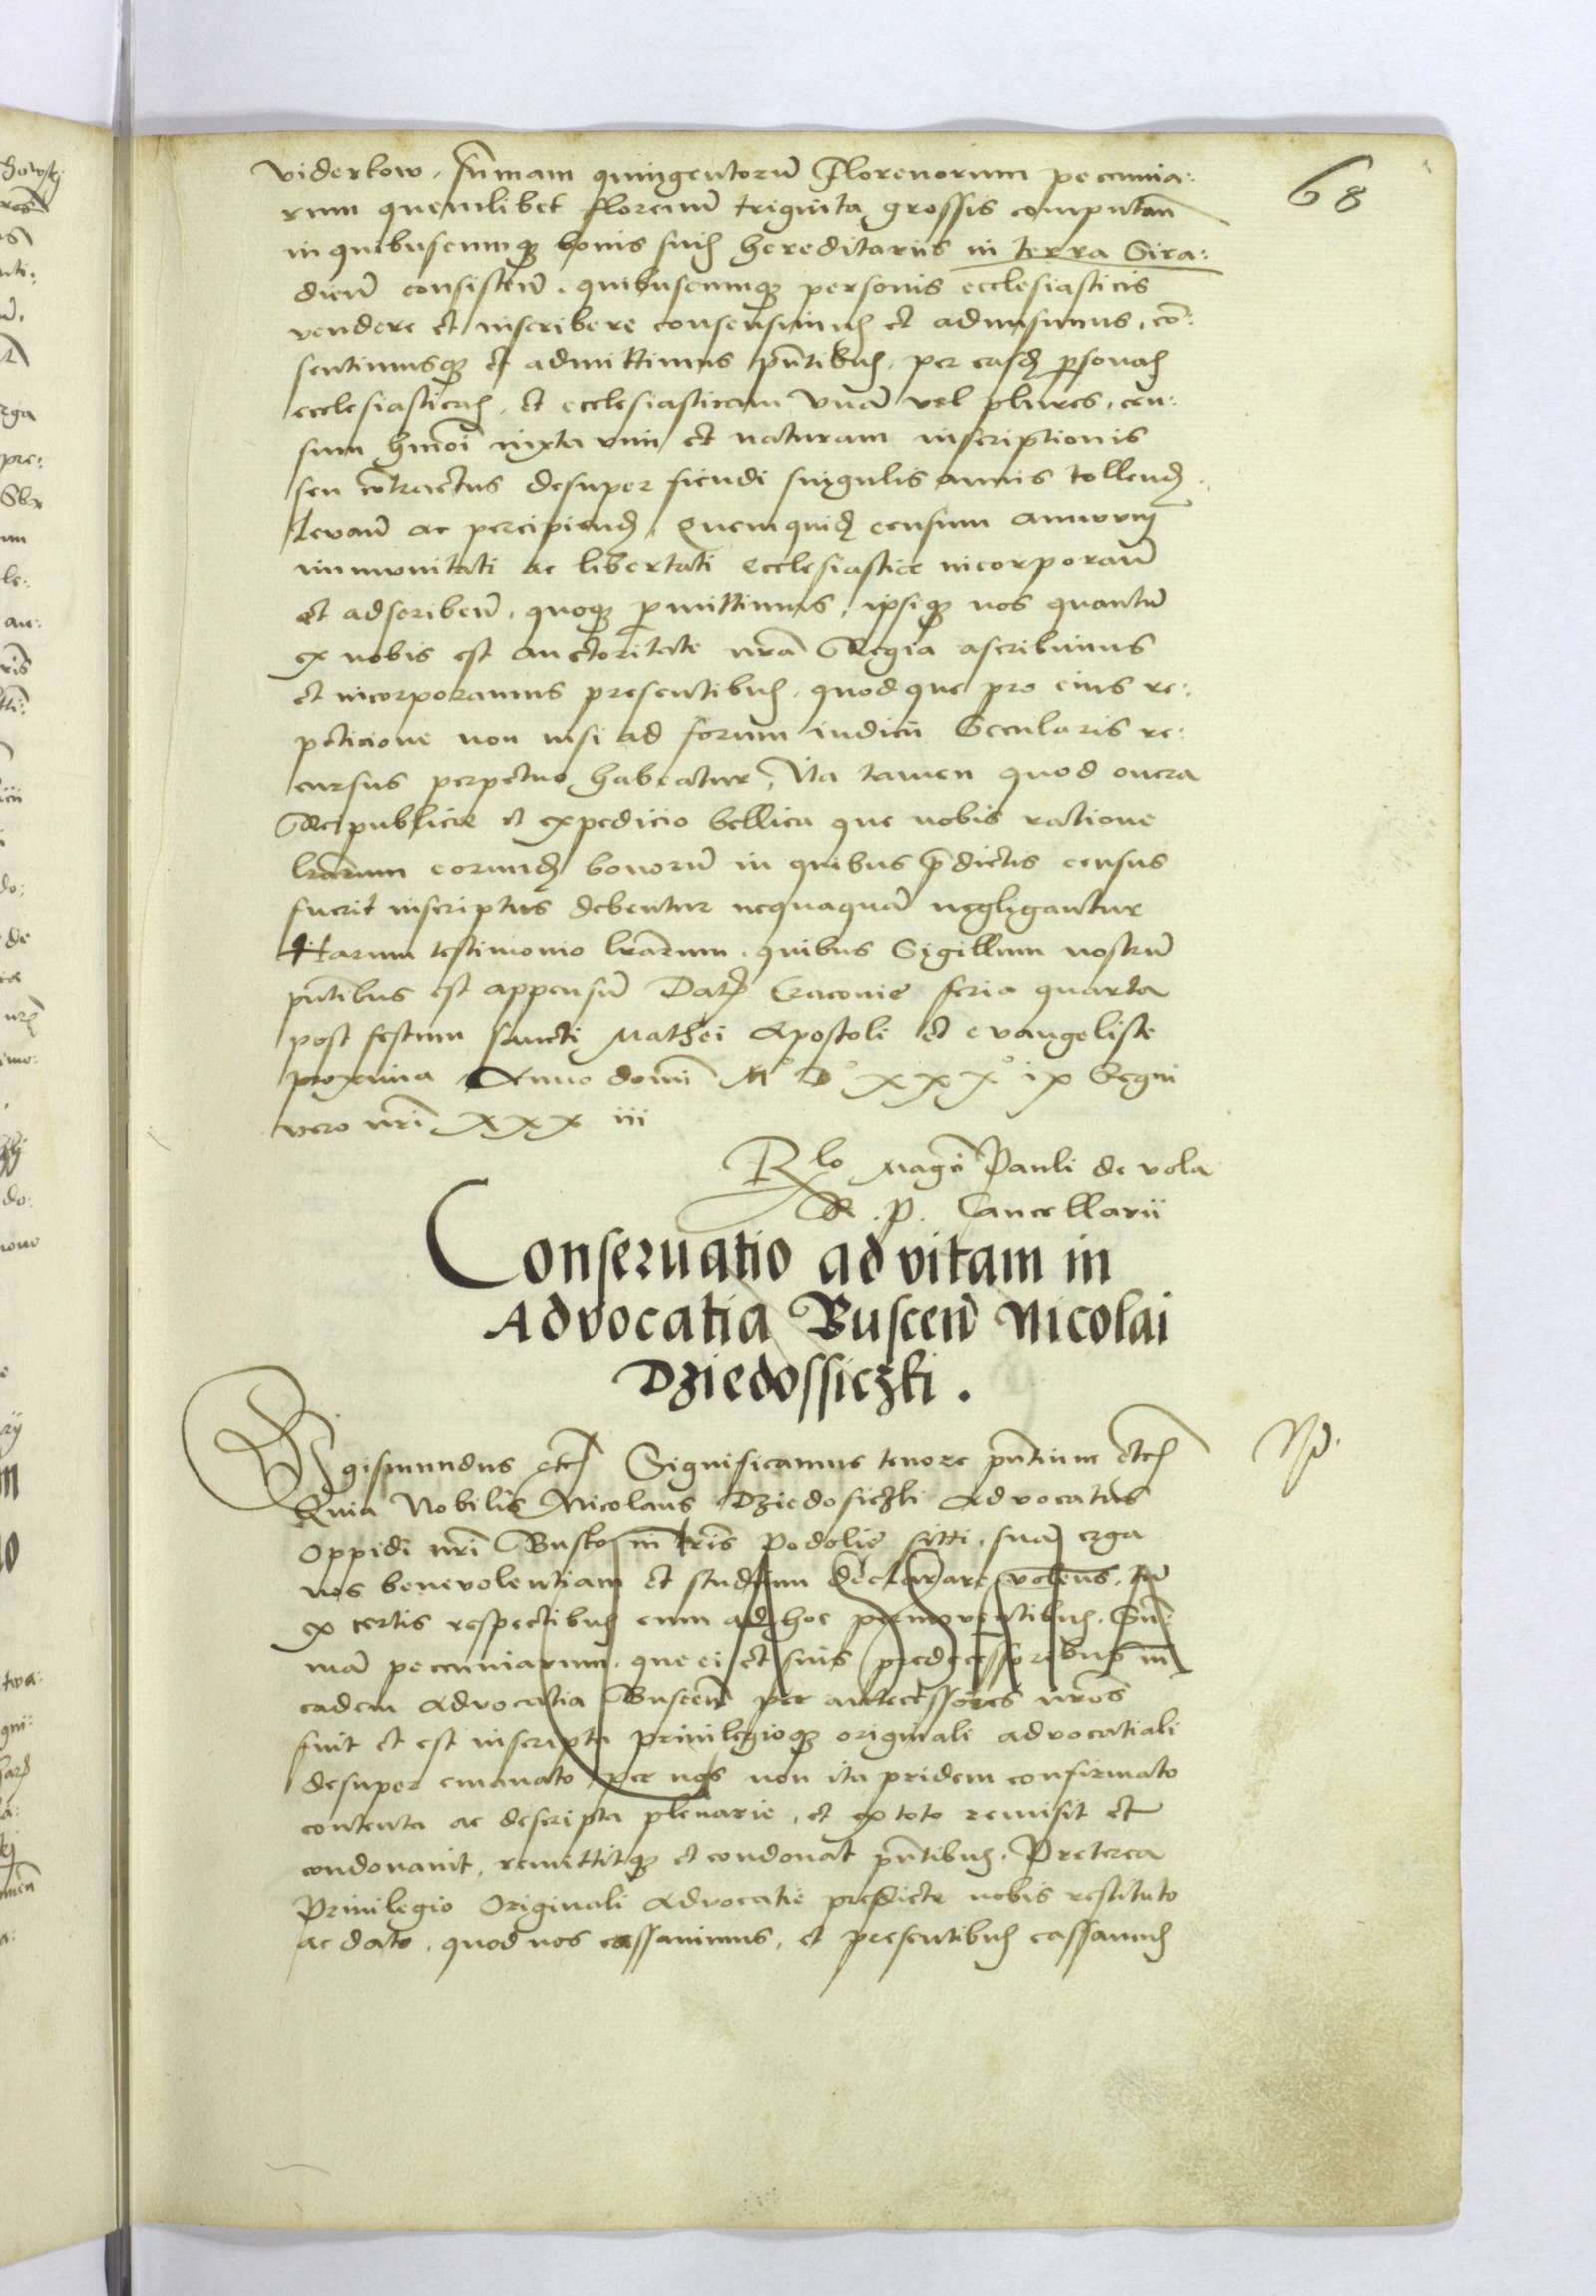 68
viderkow, sūmam quingentorū Florenorum pecunia:
rum quemlibet florenū triginta grossis computan̄
in quibuscumq; bonis suis hereditariis in terra Sira:
dien̄ consisten̄. quibuscumq; personis ecclesiasticis
vendere et inscribere consensimus et admisimus, cō:
sentimusq; et admittimus pn̄tibus, per easd psonas
ecclesiasticas, et ecclesiasticam vnā vel plures, cen:
sum hmōi iuxta vim et naturam inscriptionis
seu cōtractus desuper fiendi singulis annis tollend
levan̄ ac percipiend, Quemquid censum annuum
immunitati ac libertati ecclesiastice incorporan̄
et adscriben̄, quoq; pmittimus, ipsiq; nos quantū
ex nobis est auctoritate nr̄a Regia ascribimus
et incorporamus presentibus, quodque pro eius re:
peticione non nisi ad forum iudicii Secularis re:
cursus perpetuo habeatur, Ita tamen quod onera
Reipublicie et expedicio bellica que nobis ratione
lr̄arum eorumd bonorū in quibus p̄dictis census
fuerit inscriptus debentur nequaquā negligantur
Harum testimonio lr̄arum, quibus Sigillum nostrū
pn̄tibus est appensū Dat Cracovie feria quarta
post festum sancti Mathei Apostoli et evangeliste
proxima Anno domī M° D° xxx° ix Regni
vero nr̄i xxx iii
Rlo Magci Pauli de vola
R. P. Cancellarii
Conseruatio ad vitam in
Advocatia Buscen̄ Nicolai
Dziedossiczki.
Sigismundus etc Significamus tenore pn̄tium etc
Quia Nobilis Nicolaus Dziedosiczki Advocatus
Oppidi nr̄i Busko in tr̄is Podolie sitti, suā erga
nos benevolentiam et studium declarare volens, tū
ex certis respectibus eum ad hoc permoventibus, Sū:
mā pecuniarum, que ei et suis predecessoribus in
eadem Advocatia Buscen̄ per antecessores nr̄os
fuit et est inscripta privilegioq; originali advocatiali
desuper emanato per nos non ita pridem confirmato
contenta ac descripta plenarie, et ex toto remisit et
condonauit, remittitq; et condonat pn̄tibus, Preterea
Priuilegio Originali Advocatie predicte nobis restituto
ac dato, quod nos cassauimus, et presentibus cassamus